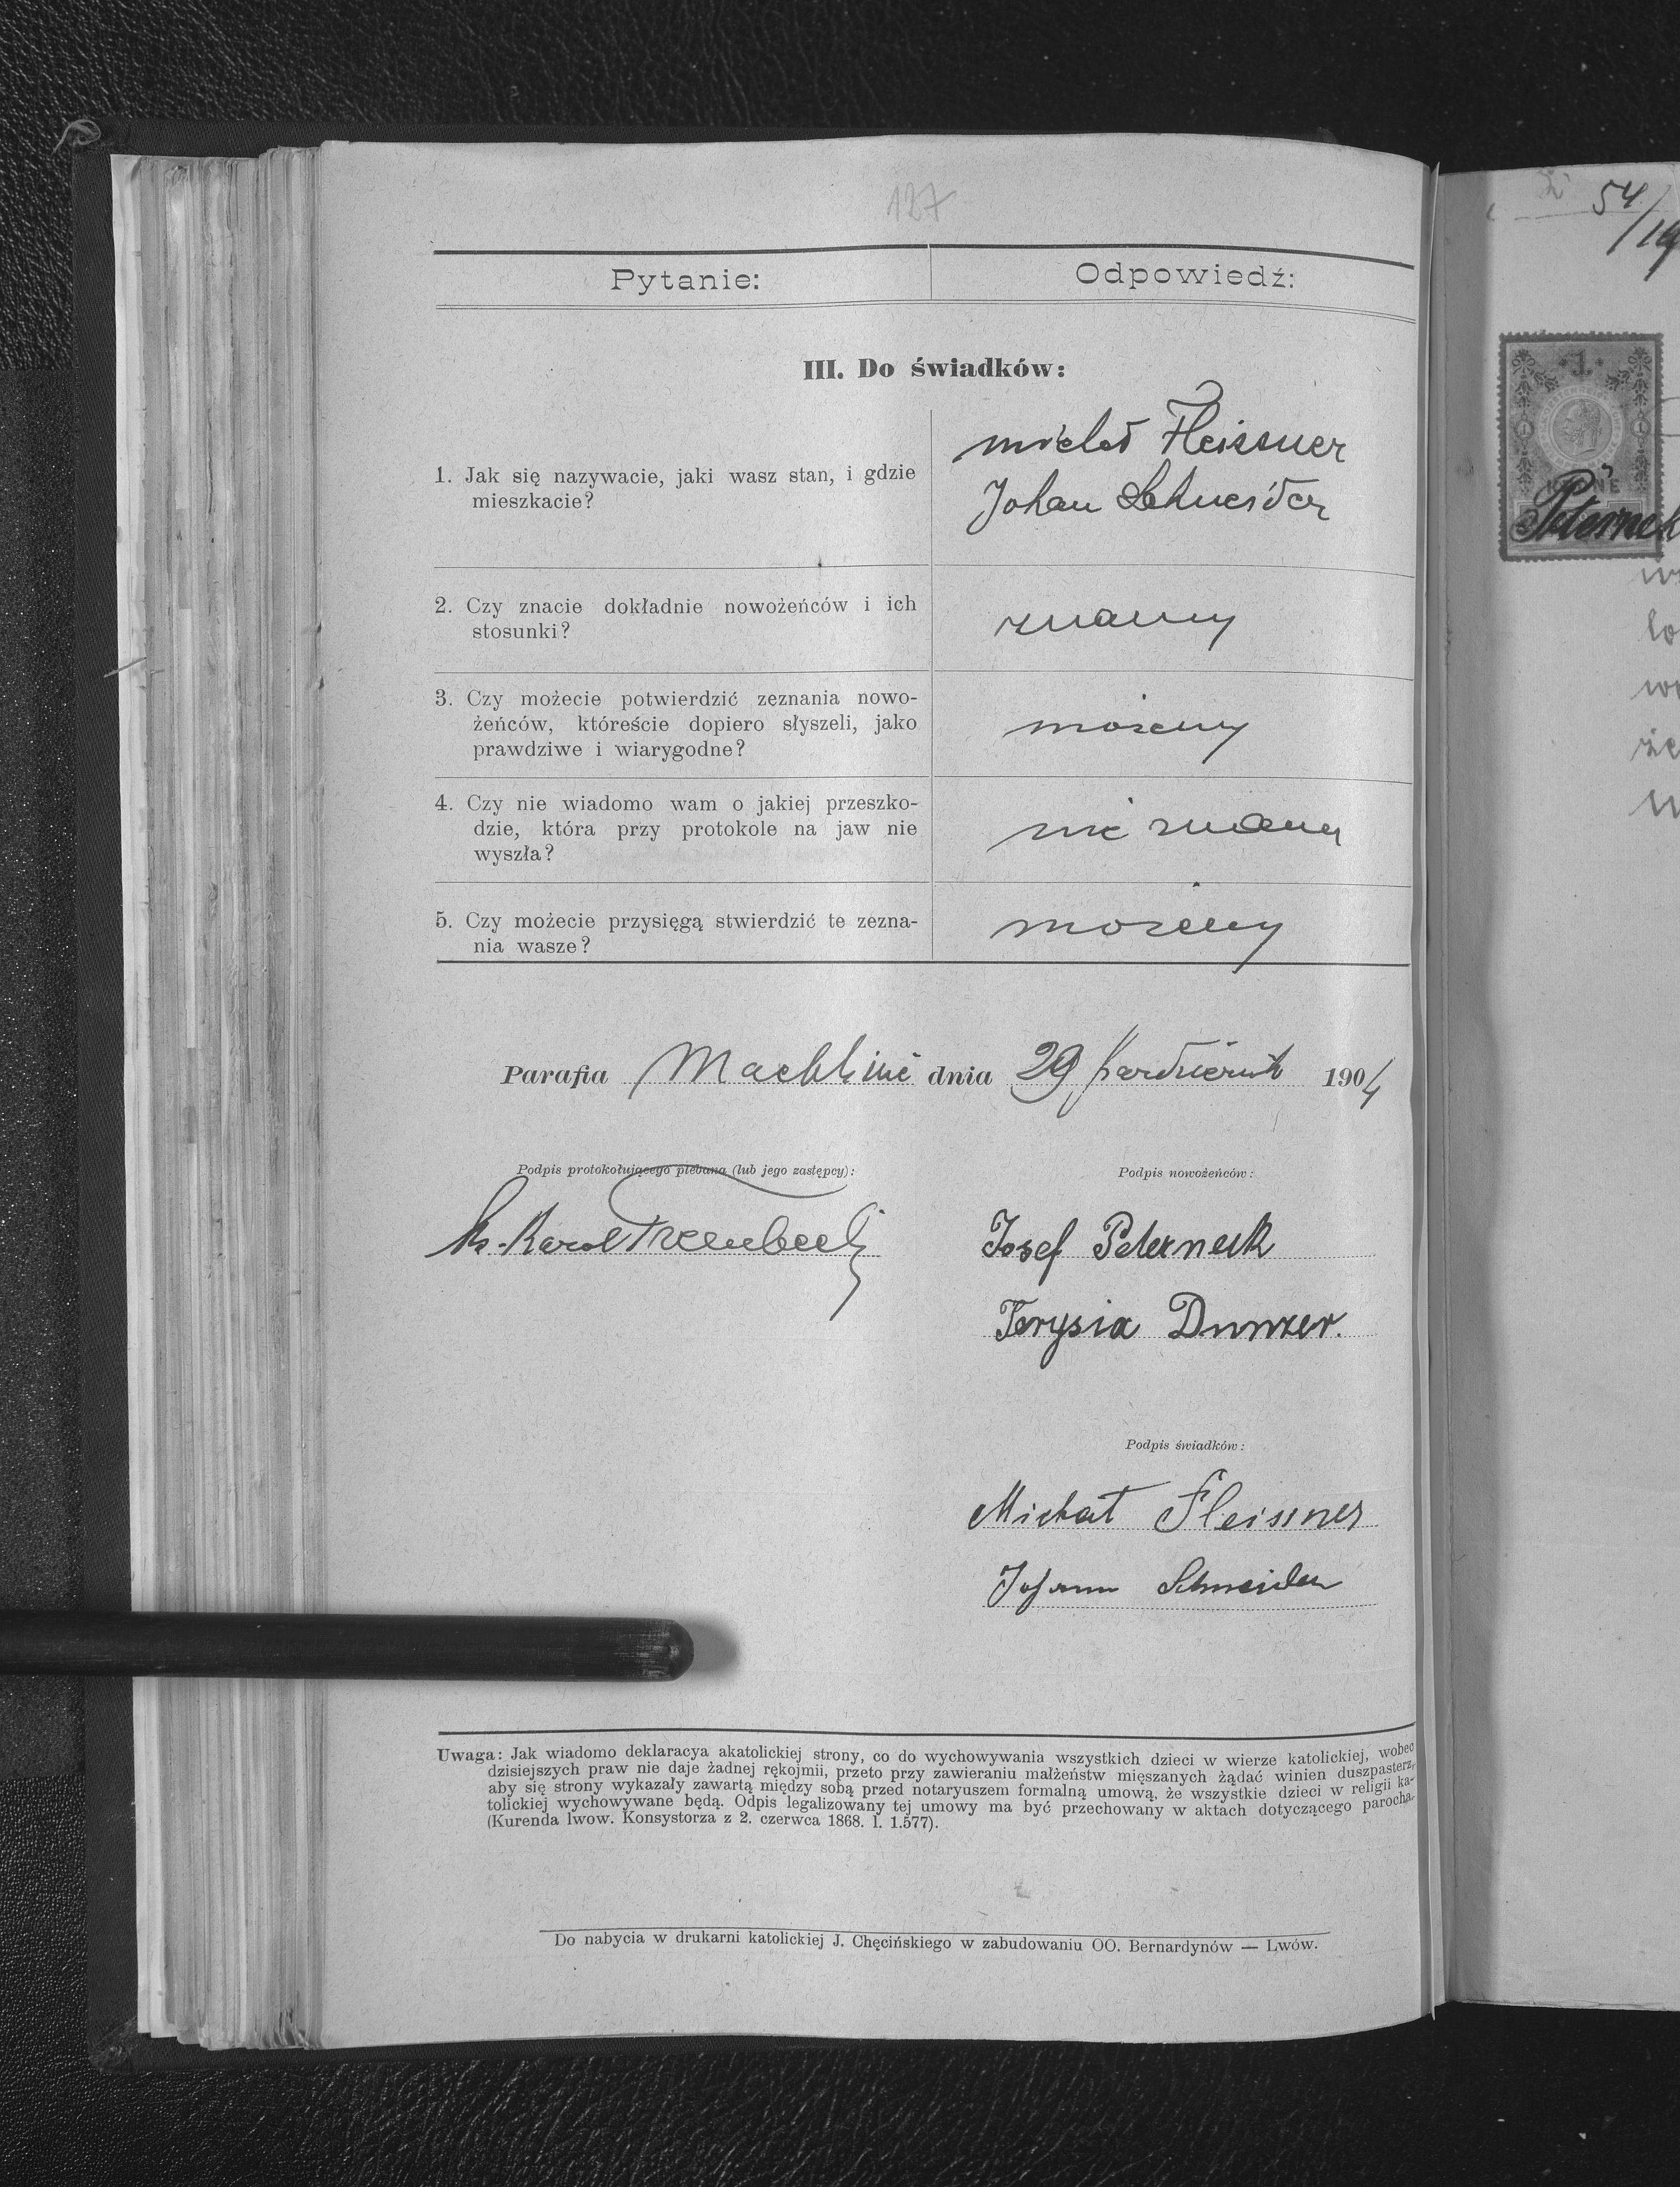 127
Pytanie:
Odpowiedź:
III. Do świadków:
1. Jak się nazywacie, jaki wasz stan, i gdzie
mieszkacie?
Michał Fleissner
Johan Schneider
2. Czy znacie dokładnie nowożeńców i ich
stosunki?
znamy
3. Czy możecie potwierdzić zeznania nowo-
żeńców, któreście dopiero słyszeli, jako
prawdziwe i wiarygodne?
możemy
4. Czy nie wiadomo wam o jakiej przeszko-
dzie, która przy protokole na jaw nie
wyszła?
nie znamy
5. Czy możecie przysięgą stwierdzić te zezna-
nia wasze?
możemy
Parafia Machliniec dnia 29 października 1904
Podpis protokołującego plebana (lub jego zastępcy):
Podpis nowożeńców:
Ks. Karol
Josef Peterneck
Terysia
Podpis świadków:
Michał Fleissner
Johann Schneider
Uwaga: Jak wiadomo deklaracya akatolickiej strony, co do wychowywania wszystkich dzieci w wierze katolickiej, wobec
dzisiejszych praw nie daje żadnej rękojmii, przeto przy zawieraniu małżeństw mięszanych żądać winien duszpasterz,
aby się strony wykazały zawartą między sobą przed notaryuszem formalną umową, że wszystkie dzieci w religii ka-
tolickiej wychowywane będą. Odpis legalizowany tej umowy ma być przechowany w aktach dotyczącego parocha.
(Kurenda lwow. Konsystorza z 2. czerwca 1868. l. 1.577).
Do nabycia w drukarni katolickiej J. Chęcińskiego w zabudowaniu OO. Bernardynów — Lwów.
54/19
1